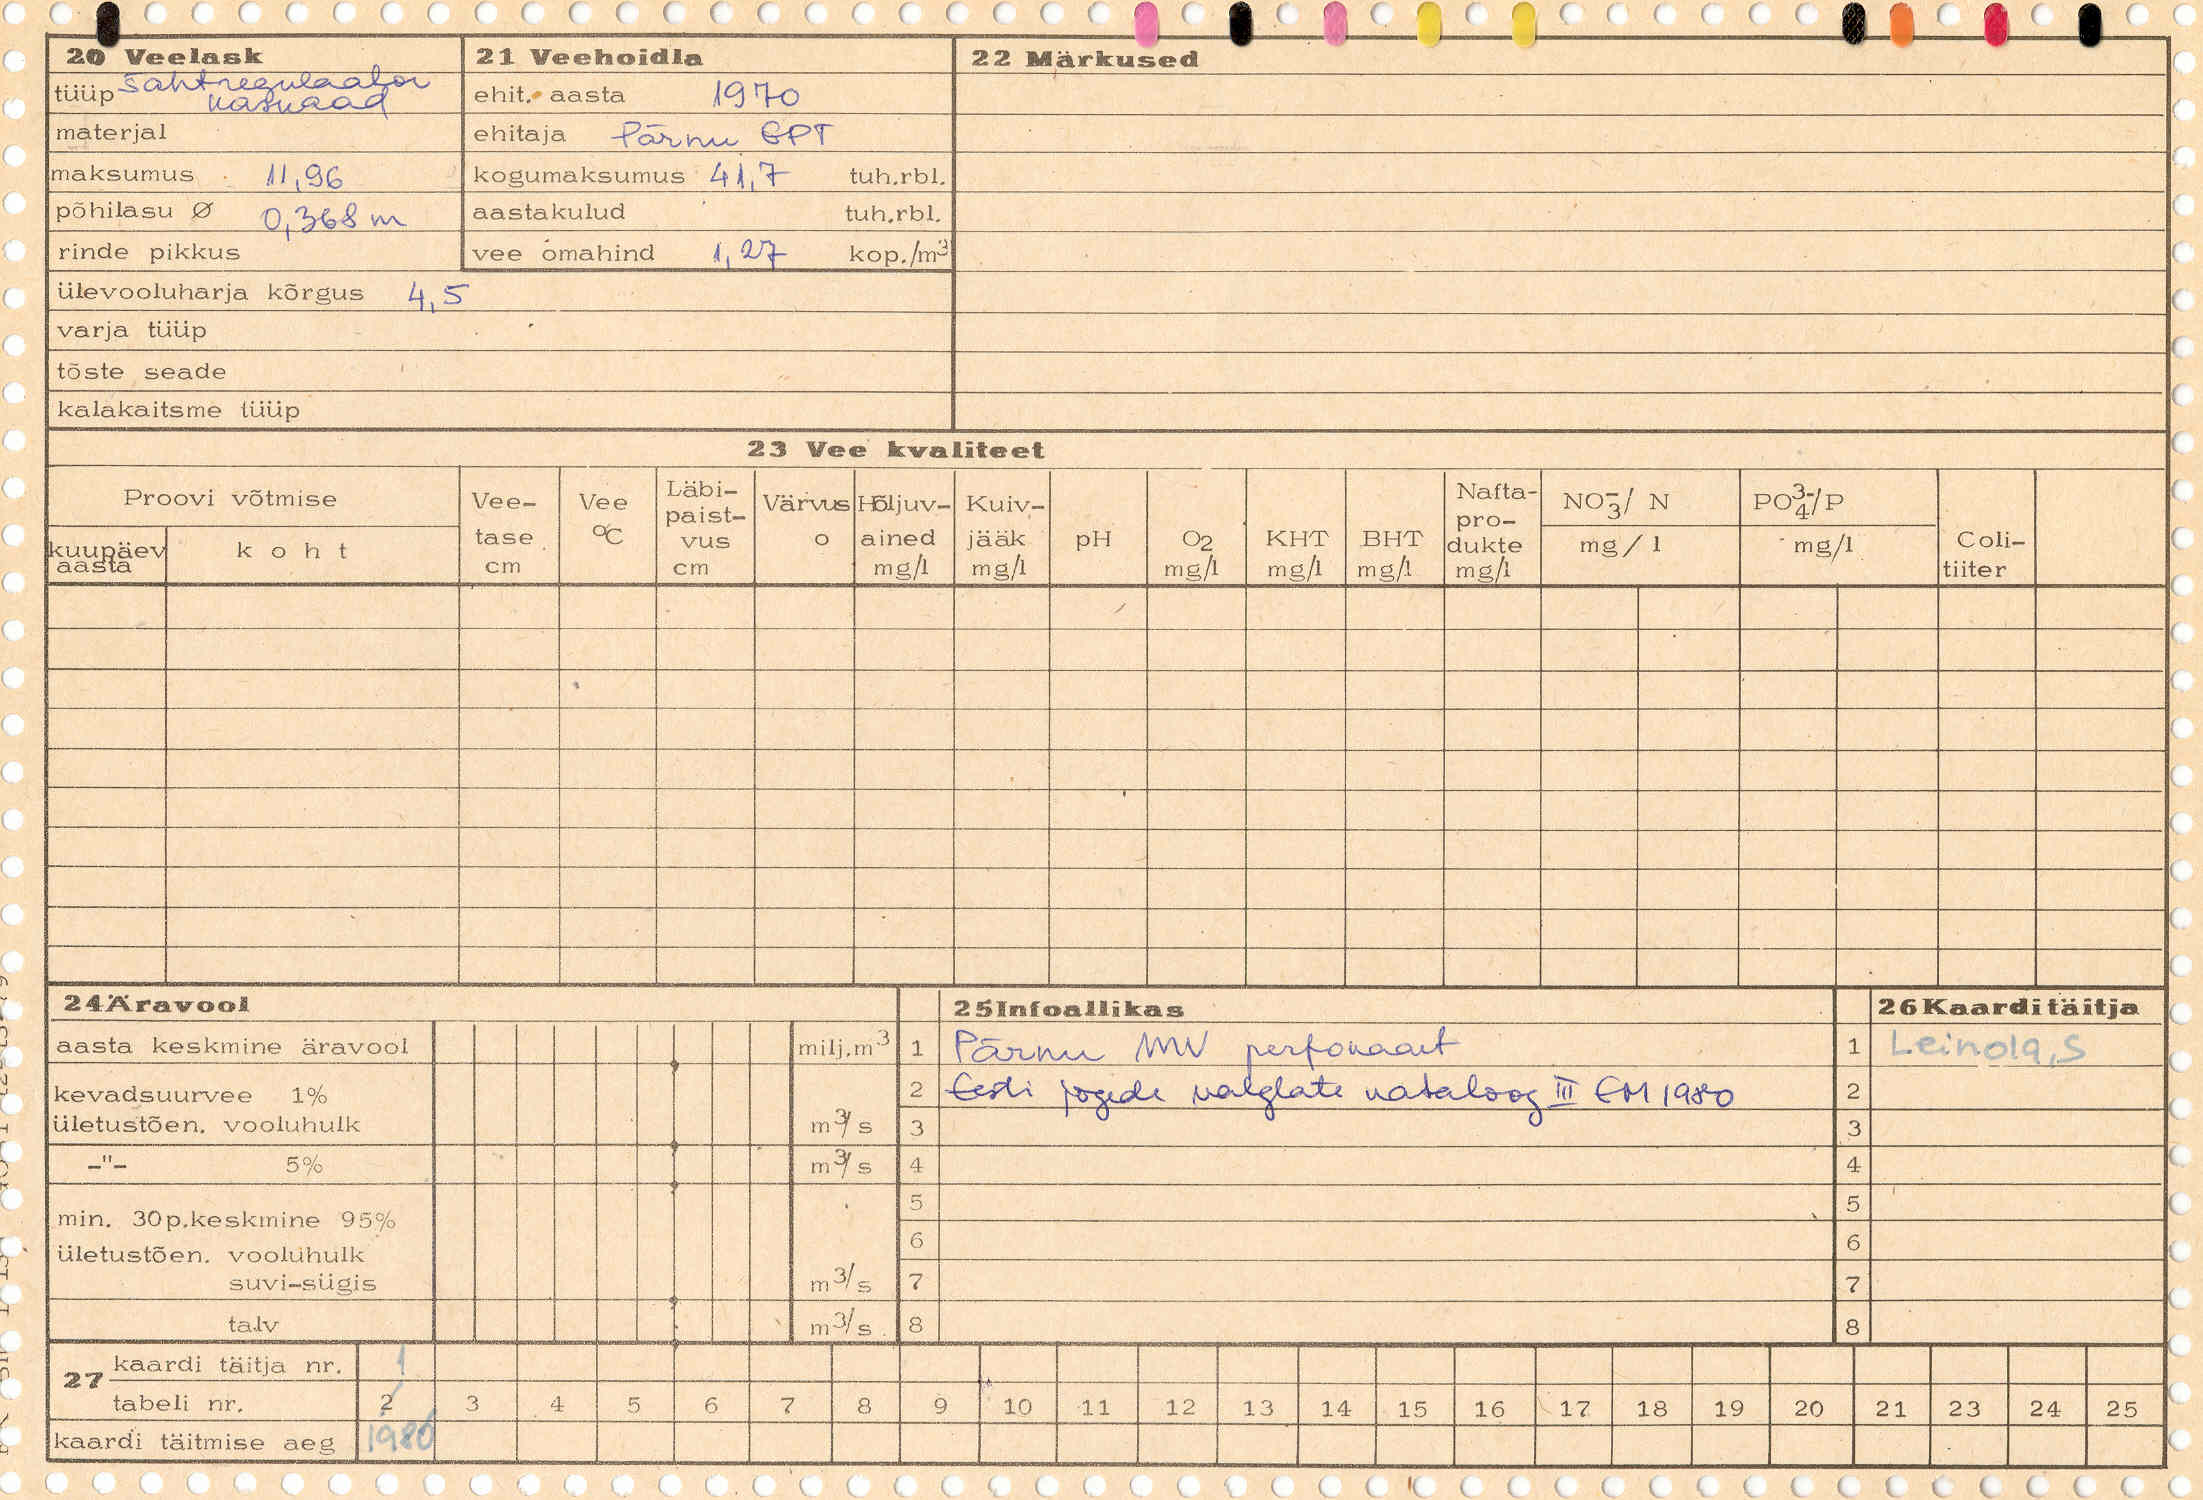 20 Veelask
tüüp šahtregulaator
kaskaad
materjal
maksumus 11,96
põhilasu Ø 0,368 m
rinde pikkus
ülevooluharja kõrgus 4,5
varja tüüp
tõste seade
kalakaitsme tüüp
21 Veehoidla
ehit. aasta 1970
ehitaja Pärnu EPT
kogumaksumus 41,7 tuh.rbl.
aastakulud tuh.rbl.
vee omahind 1,27 kop./m³
22 Märkused
23 Vee kvaliteet
Proovi võtmise
kuupäev
aasta
koht
Vee-
tase
cm
Vee
°C
Läbi-
paist-
vus
cm
Värvus
o
Hõljuv-
ained
mg/l
Kuiv-
jääk
mg/l
pH
O₂
mg/l
KHT
mg/l
BHT
mg/l
Nafta-
pro-
dukte
mg/l
NO₃⁻/ N
mg/l
PO₄³⁻/P
mg/l
Coli-
tiiter
24 Äravool
aasta keskmine äravool milj.m³
kevadsuurvee 1%
ületustõen. vooluhulk m³/s
-"- 5% m³/s
min. 30p.keskmine 95%
ületustõen. vooluhulk
suvi-sügis m³/s
talv m³/s
25 Infoallikas
1 Pärnu MV perfokaart
2 Eesti jõgede valglate kataloog III EM 1980
3
4
5
6
7
8
26 Kaardi täitja
1 Leinola, S
2
3
4
5
6
7
8
27
kaardi täitja nr. 1
tabeli nr. 2 3 4 5 6 7 8 9 10 11 12 13 14 15 16 17 18 19 20 21 23 24 25
kaardi täitmise aeg 1980